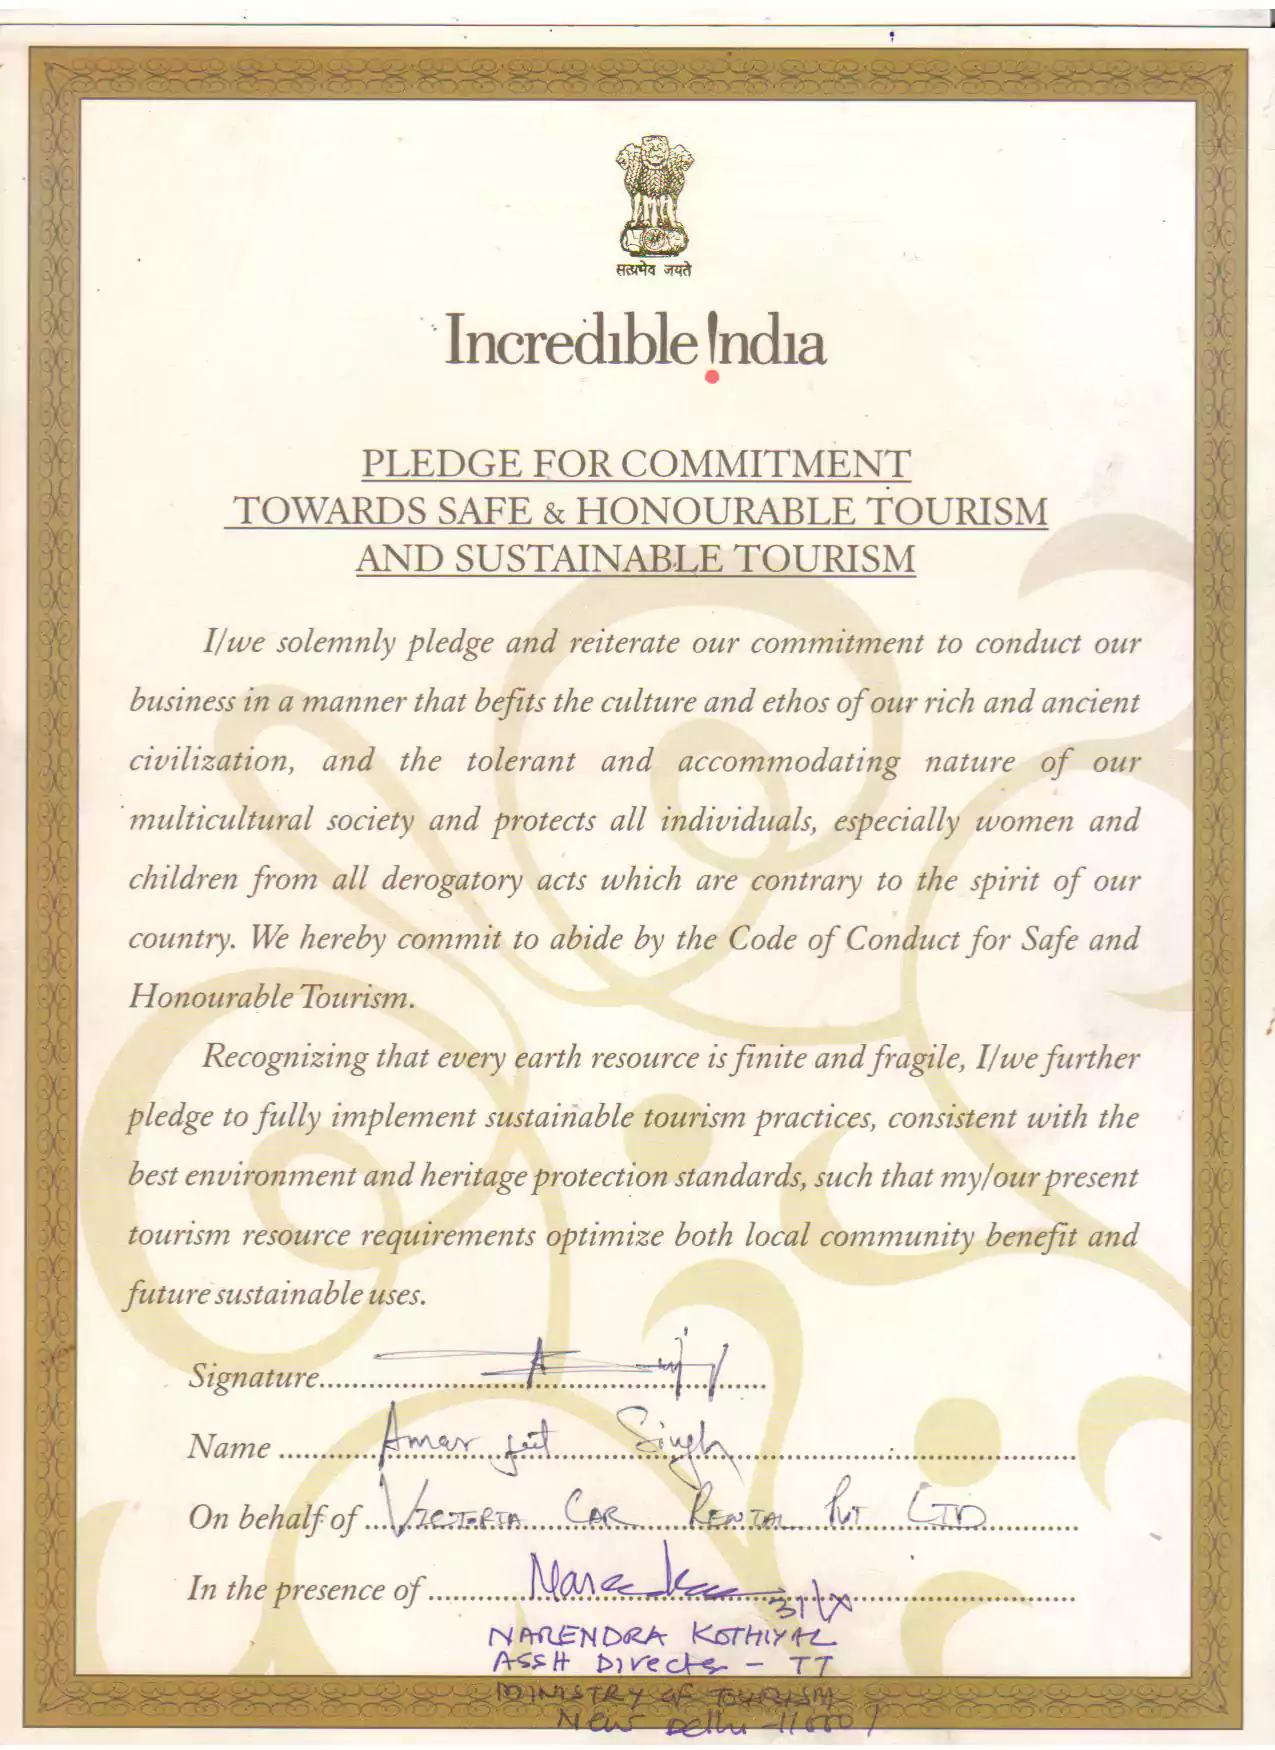 सत्यमेव जयते
Incredible !ndia
PLEDGE FOR COMMITMENT
TOWARDS SAFE & HONOURABLE TOURISM
AND SUSTAINABLE TOURISM
I/we solemnly pledge and reiterate our commitment to conduct our
business in a manner that befits the culture and ethos of our rich and ancient
civilization, and the tolerant and accommodating nature of our
multicultural society and protects all individuals, especially women and
children from all derogatory acts which are contrary to the spirit of our
country. We hereby commit to abide by the Code of Conduct for Safe and
Honourable Tourism.
Recognizing that every earth resource is finite and fragile, I/we further
pledge to fully implement sustainable tourism practices, consistent with the
best environment and heritage protection standards, such that my/our present
tourism resource requirements optimize both local community benefit and
future sustainable uses.
Signature
Name Amar jeet Singh
On behalf of VICTORIA CAR RENTAL Pvt LTD
In the presence of
31/X
NARENDRA KOTHIYAL
ASStt Director - TT
MINISTRY OF TOURISM
New Delhi - 110001